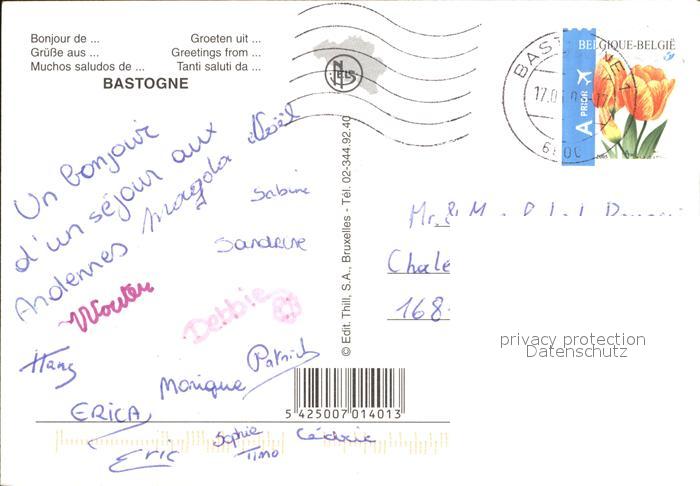 Bonjour de ...
Groeten uit ...
Grüße aus ...
Greetings from ...
Muchos saludos de ...
Tanti saluti da ...
BASTOGNE
NELS
BELGIQUE-BELGIË
A PRIOR
BASTOGNE 1
Un bonjour
d'un séjour aux
Ardennes
Magda
Noël
Sabine
Sandrine
Wouter
Debbie
Hans
Patrick
Monique
ERICA
Eric
Sophie
Timo
Cédric
© Edit. Thill, S.A., Bruxelles - Tél. 02-344.92.40
5 425007 014013
Mr. &
Chale
168
privacy protection
Datenschutz